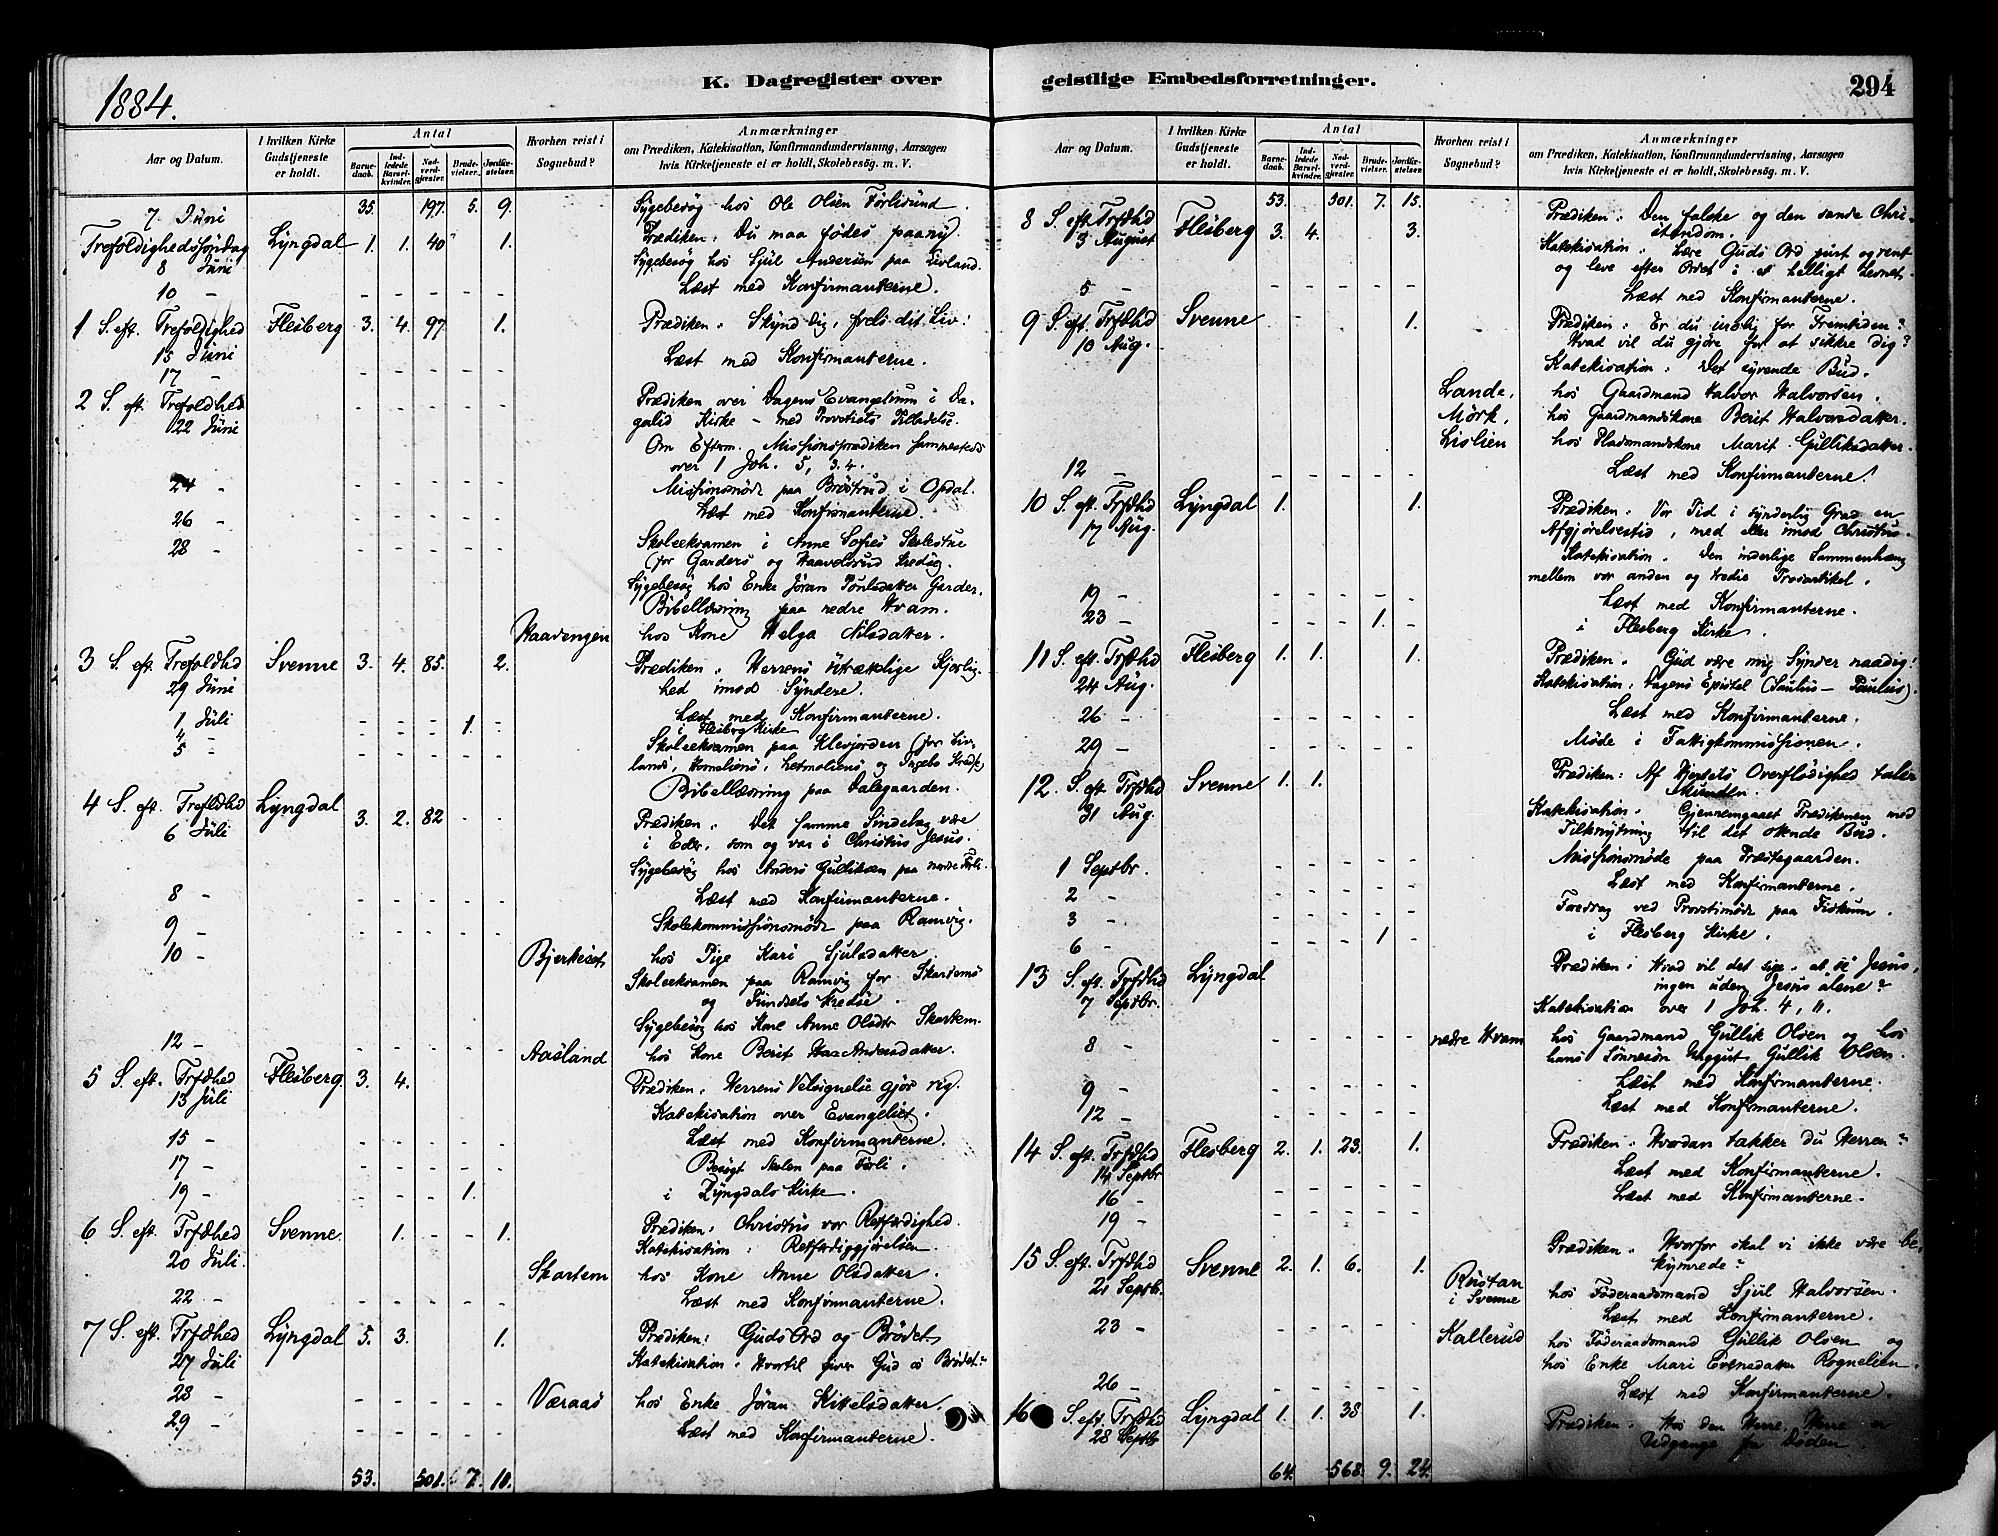 1884.
K. Dagregister over
Aar og Datum.
I hvilken Kirke Gudstjeneste er holdt.
Antal
Barnedaab.
Indledede Barselkvinder.
Nadverdgjæster.
Brudevielser.
Jordfæstelser.
Hvorhen reist i Sognebud?
Anmærkninger
om Prædiken, Katekisation, Konfirmandundervisning, Aarsagen
hvis Kirketjeneste ei er holdt, Skolebesøg. m. V.
7 Juni 35. 197. 5. 9. Sygebesøg hos Ole Olsen Førlisund.
Trefoldighedssøndag Lyngdal 1. 1. 40 1. Prædiken: Du maa fødes paany.
8 Juni Sygebesøg hos Sjul Andersen paa Livland.
10 - Læst med Konfirmanterne.
1 S. eft. Trefoldighed Flesberg 3. 4. 97. 1. Prædiken: Skynd dig, frels dit Liv.
15 Juni
17 - Læst med Konfirmanterne.
2 S. eft. Trefoldhed Prædiken over Dagens Evangelium i Da-
22 Juni galid Kirke - med Provstiets Tilladelse.
Om Efterm. Missionsprædiken sammesteds
over 1 Joh. 5, 3.4.
24 - Missionsmøde paa Brøstrud i Opdal.
26 - Læst med Konfirmanterne.
28 - Skoleexamen i Anne Sofies Skolestue
(for Garders og Haavelsrud Kreds).
Sygebesøg hos Enke Jøran Poulsdatter Garder.
Bibellæsning paa nedre Hvam.
Haavengen hos Kone Helga Nilsdatter.
3 S. eft. Trefoldhd Svenne 3. 4. 85. 2. Prædiken: Herrens utrættelige Kjærlig-
29 Juni hed imod Syndere.
1 Juli Læst med Konfirmanterne.
4 - 1. i Flesberg Kirke
5 - Skoleexamen paa Klevjorden (for Liv-
lands, og Ingebo Kreds)
Bibellæsning paa Dalegaarden.
4 S. eft. Trefldhd Lyngdal 3. 2. 82 Prædiken: Det samme Sindelag være
6 Juli i Eder, som og var i Christus Jesus.
Sygebesøg hos Anders Gulliksen paa nordre Førli.
8 - Læst med Konfirmanterne.
9 - Skolekommissionsmøde paa Ramvig.
10 - Bjerkeset hos Pige Kari Sjulsdatter
Skoleexamen paa Ramvig for Skartems
og Kredse.
Sygebesøg hos Kone Anne Olsdtr Skartem.
12 - Aasland hos Kone Berit Andersdatter.
5 S. eft. Trfdhed Flesberg 3. 4. Prædiken: Herrens Velsignelse gjør rig.
13 Juli Katekisation over Evangeliet.
15 - Læst med Konfirmanterne.
17 - Besøgt Skolen paa Førli.
19 - 1. i Lyngdals Kirke.
6 S. eft. Trfdhed Svenne 1. 1. Prædiken: Christus vor Retfærdighed.
20 Juli. Katekisation: Retfærdiggjørelsen
Skartem hos Kone Anne Olsdatter.
22 - Læst med Konfirmanterne.
7 S. eft. Trfdhed Lyngdal 5. 3. 1. Prædiken: Guds Ord og Brødet.
27 Juli Katekisation: Hvortil giver Gud os Brødet?
28 - Væraas hos Enke Jøran Kittelsdatter.
29. - Læst med Konfirmanterne.
53. 501. 7. 10.
geistlige Embedsforretninger.
294
Aar og Datum.
I hvilken Kirke Gudstjeneste er holdt.
Antal
Barnedaab.
Indledede Barselkvinder.
Nadverdgjæster.
Brudevielser.
Jordfæstelser.
Hvorhen reist i Sognebud?
Anmærkninger
om Prædiken, Katekisation, Konfirmandundervisning, Aarsagen
hvis Kirketjeneste ei er holdt, Skolebesøg. m. V.
53. 501. 7. 15.
8 S. eft. Trfdhd Flesberg 3. 4. 3. Prædiken: Den falske og den sande Chri-
3 August stendom.
Katekisation: Lære Guds Ord purt og rent
og leve efter Ordet i et helligt Levnet.
5 - Læst med Konfirmanterne.
9 S. eft. Trfdhd Svenne 1. Prædiken: Er du urolig for Fremtiden?
10 Aug. Hvad vil du gjøre for at sikke dig?
Katekisation: Det syvende Bud.
Lande, hos Gaardmand Halvor Halvorsen.
Mørk, hos Gaardmandskone Berit Halvorsdatter.
Lislien hos Pladsmandskone Marit Gulliksdatter.
12 - Læst med Konfirmanterne!
10 S. eft. Trfdhd Lyngdal 1. 1. Prædiken: Vor Tid i synderlig Grad en
17 Aug. Afgjørelsestid, med eller imod Christus.
Katekisation. Den inderlige Sammenhæng
mellem vor anden og tredie Trosartikel.
19 - Læst med Konfirmanterne.
23 - 1. i Flesberg Kirke.
11 S. eft. Trfdhd Flesberg 1. 1. 1. Prædiken. Gud være mig Synder naadig!
24 Aug. Katekisation: Dagens Epistel (Saulus - Paulus).
26 - Læst med Konfirmanterne.
29 - Møde i Fattigkommissionen.
12. S. eft. Trfdhd Svenne 1. 1. Prædiken: Af Hjertets Overflødighed taler
31 Aug. Munden.
Katekisation. Gjennemgaaet Prædikenen med
Tilknytning til det ottende Bud.
1 Septbr. Missionsmøde paa Præstegaarden.
2 - Læst med Konfirmanterne.
3 - Foredrag ved Provstimøde paa Fiskum.
6 - 1 i Flesberg Kirke.
13 S. eft. Trfdhd Lyngdal Prædiken: Hvad vil det sige at se Jesus,
7 Septbr. ingen uden Jesus alene?
Katekisation over 1 Joh. 4, 11.
8 - nedre Hvam hos Gaardmand Gullik Olsen og hos
hans Sønnesøn Gullik Olsen.
9 - Læst med Konfirmanterne.
12 - Læst med Konfirmanterne.
14 S. eft. Trfdhd Flesberg 2. 1. 23. 1. Prædiken: Hvordan takker du Herren?
14 Septbr
16 - Læst med Konfirmanterne.
19 - Læst med Konfirmanterne.
15 S. eft. Trfdhd Svenne 2. 1. 6. 1. Prædiken. Hvorfor skal vi ikke være be-
21 Septbr. kymrede?
Rustan i Svenne hos Føderaadsmand Sjul Halvorsen.
23 - Læst med Konfirmanterne.
Kallerud hos Føderaadsmand Gullik Olsen og
hos Enke Mari Evensdatter Rognelien.
26 - Læst med Konfirmanterne.
16 S. eft. Trfdhd Lyngdal 1. 1. 38. 1. Prædiken. Hos den Herre, Herre er
28 Septbr Udgange fra Døden.
64. 568. 9. 24.